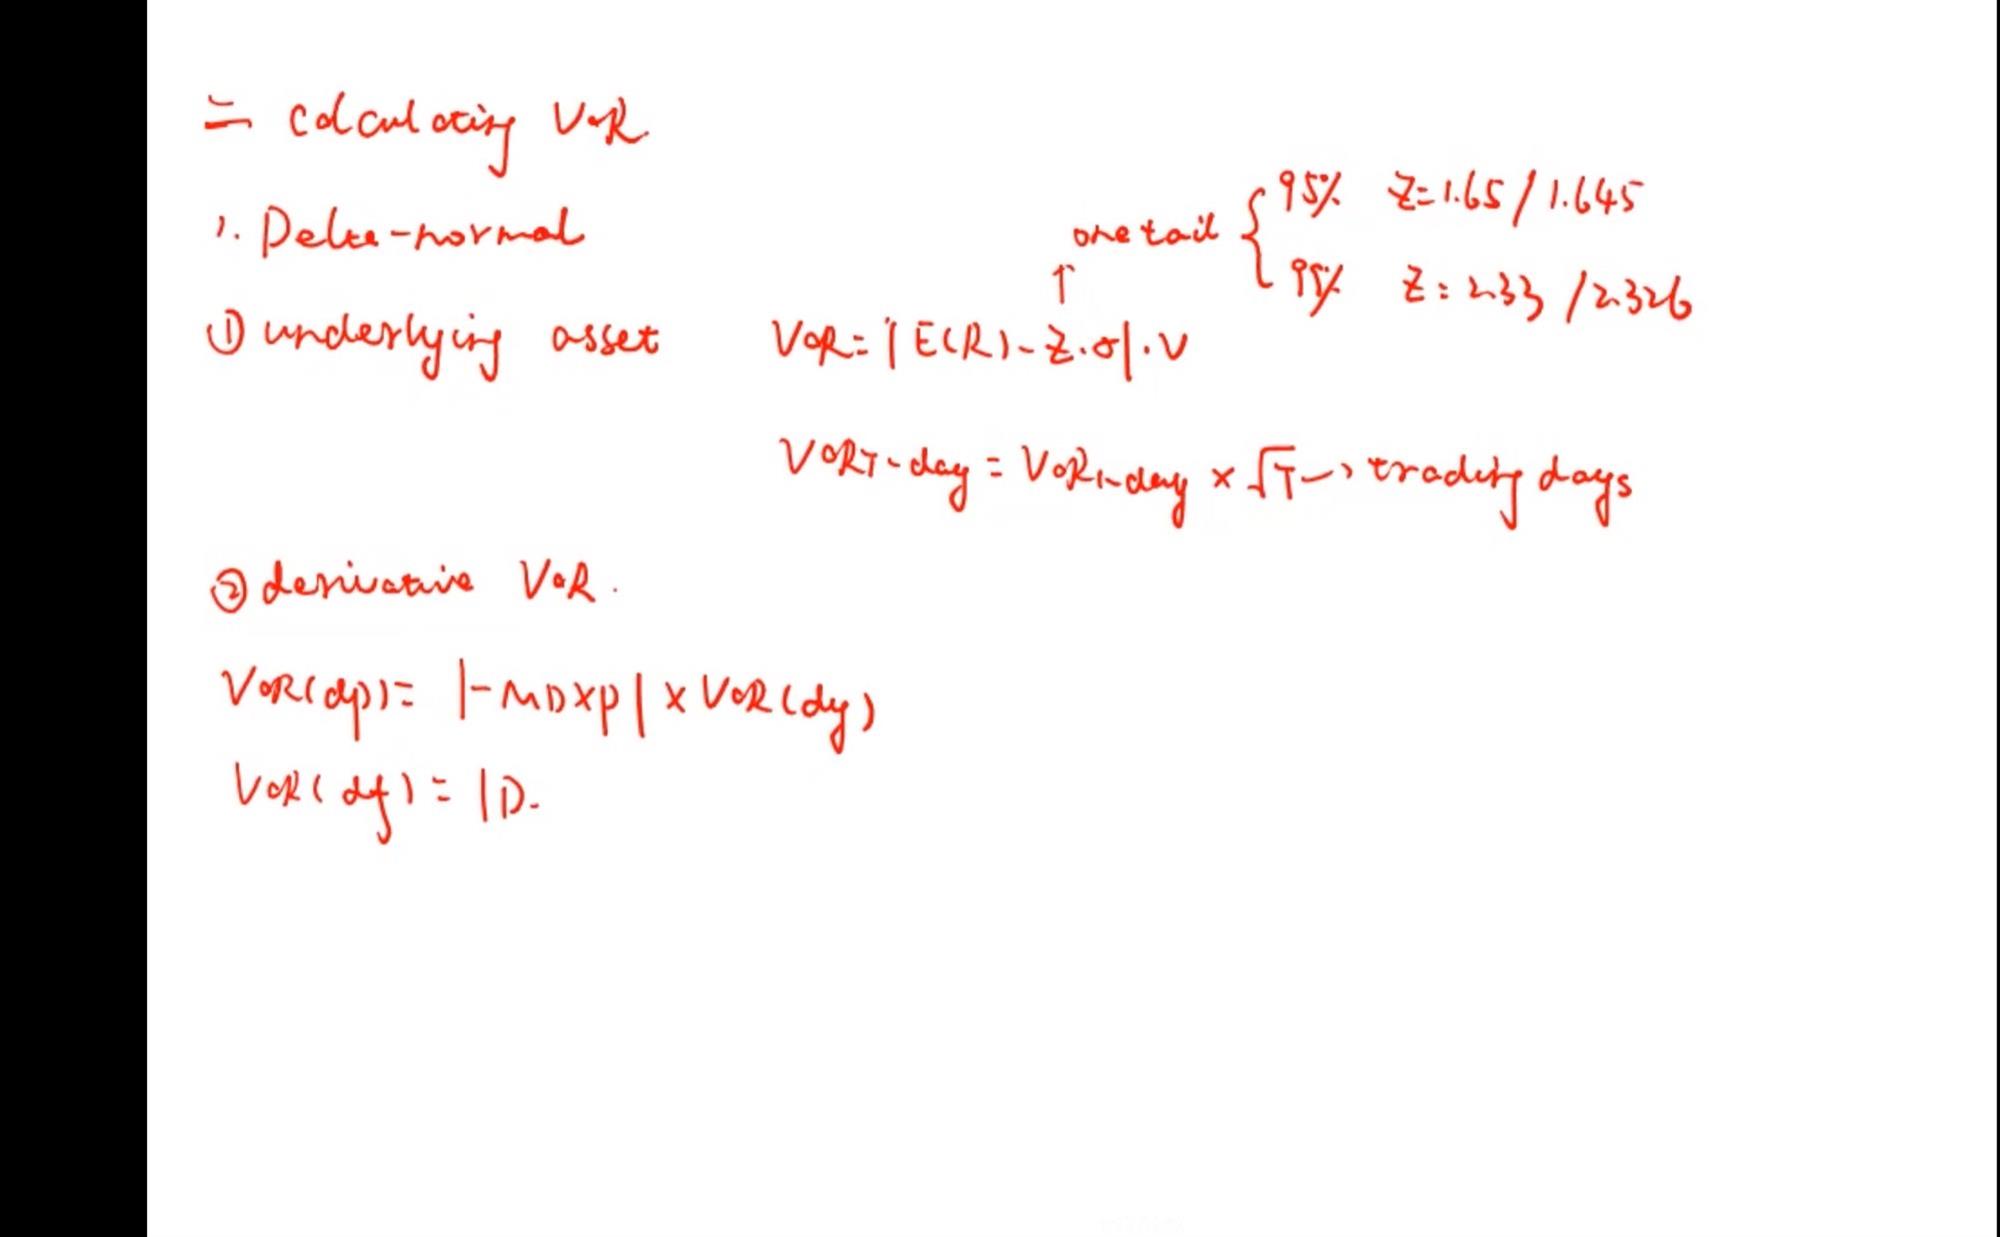 二 calculating VaR
1. Delta-normal
one tail { 95% Z=1.65/1.645
99% Z=2.33/2.326
↑
① underlying asset VaR=|E(R)-Z·σ|·V
VaR T-day = VaR 1-day × √T → trading days
② derivative VaR.
VaR(dp)= |-MD×P| × VaR(dy)
VaR(df)= |D-